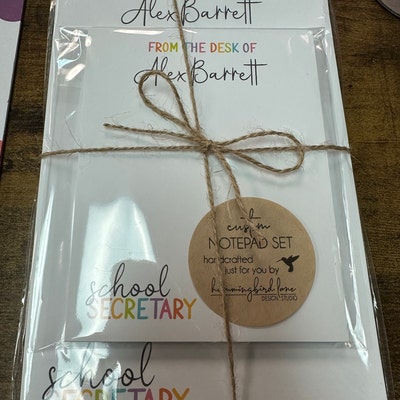 Alex Barrett
FROM THE DESK OF
Alex Barrett
custom
NOTEPAD SET
handcrafted
just for you by
hummingbird lane
DESIGN STUDIO
school
SECRETARY
school
SECRETARY